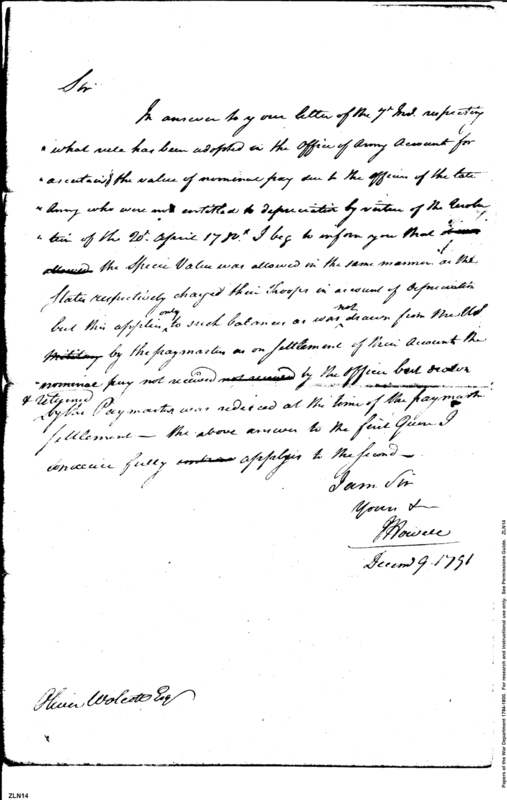 Sir
In answer to your letter of the 7th Ind. respecting
" what rule has been adopted in the Office of Army Account for
" ascertaining the value of nominal pay due to the officers of the late
" Army who were not entitled to depreciation by virtue of the Resolu
" tion of the 20th April 1780" I beg to inform you that
allowed the Specie Value was allowed in the same manner as the
States respectively charged their Troops in account of depreciation
but this applies only to such balances as was not drawn from the US
Military by the paymaster as on settlement of their Account the
nominal pay not received not received by the Officer but drawn
& returned by the Paymaster was reduced at the time of the paymaster
settlement — the above answer to the first Quere I
conceive fully applys to the second —
I am Sir
Yours &
J Howell
Decem 9. 1791
Oliver Wolcott Esq
Papers of the War Department 1784-1800. For research and instructional use only. See Permissions Guide. ZLN14
ZLN14